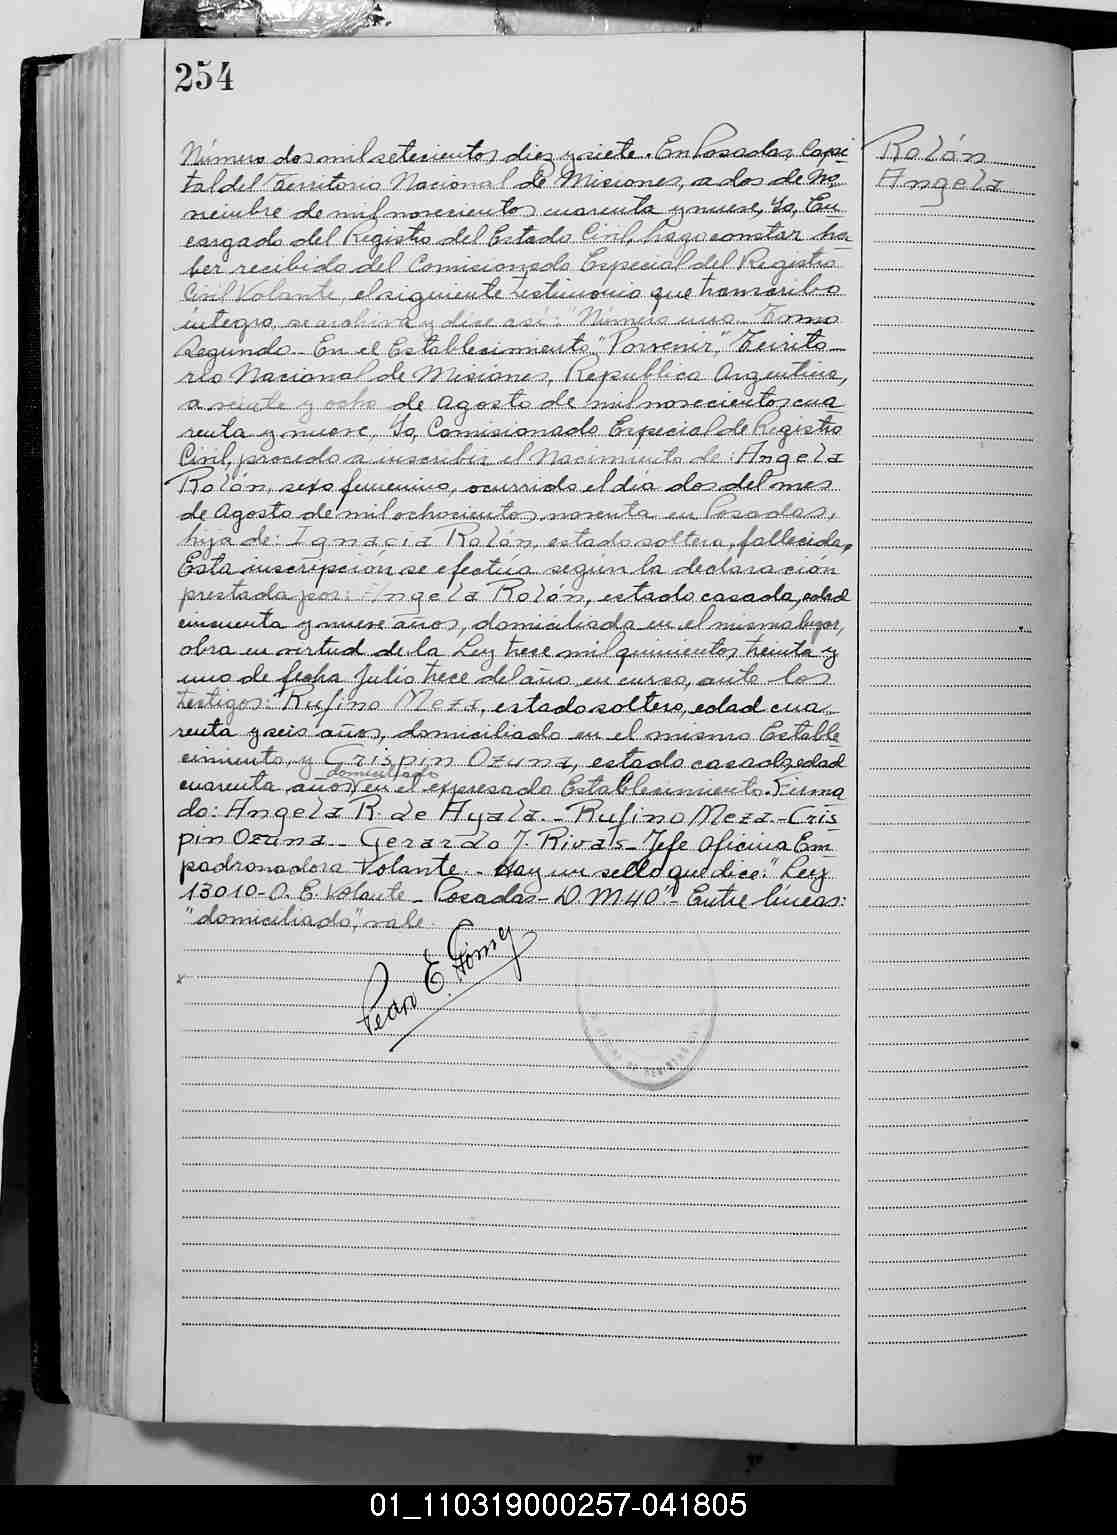 254
Número dos mil setecientos diez y siete. En Posadas, Capi-
tal del Territorio Nacional de Misiones, a dos de No-
veimbre de mil novecientos cuarenta y nueve, Yo, En-
cargado del Registro del Estado Civil, hago constar ha-
ber recibido del Comisionado Especial del Registro
Civil Volante, el siguiente testimonio que transcribo
íntegro, se archiva y dice así: "Número uno. Tomo
Segundo. En el Establecimiento "Porvenir", Territo-
rio Nacional de Misiones, Republica Argentina,
a veinte y ocho de Agosto de mil novecientos cua-
renta y nueve, Yo, Comisionado Especial de Registro
Civil, procedo a inscribir el Nacimiento de: Angela
Rolón, sexo femenino, ocurrido el día dos del mes
de Agosto de mil ochocientos noventa en Posadas,
hija de: Ignacia Rolón, estado soltera, fallecida.
Esta inscripción se efectua según la declaración
prestada por: Angela Rolón, estado casada, edad
cincuenta y nueve años, domiciliada en el mismo lugar,
obra en virtud de la Ley trece mil quinientos treinta y
uno de fecha Julio trece del año en curso, ante los
testigos: Rufino Meza, estado soltero, edad cua-
renta y seis años, domiciliado en el mismo Estable-
cimiento, y Crispin Ozuna, estado casado, edad
domiciliado
cuarenta años, en el expresado Establecimiento. Firma-
do: Angela R. de Ayala. - Rufino Meza. - Cris-
pin Ozuna. - Gerardo J. Rivas - Jefe Oficina Em-
padronadora Volante. - Hay un sello que dice: "Ley
13010 - O. E. Volante - Posadas - D. M 40" - Entre líneas:
"domiciliado", vale.
Rolón
Angela
01_110319000257-041805